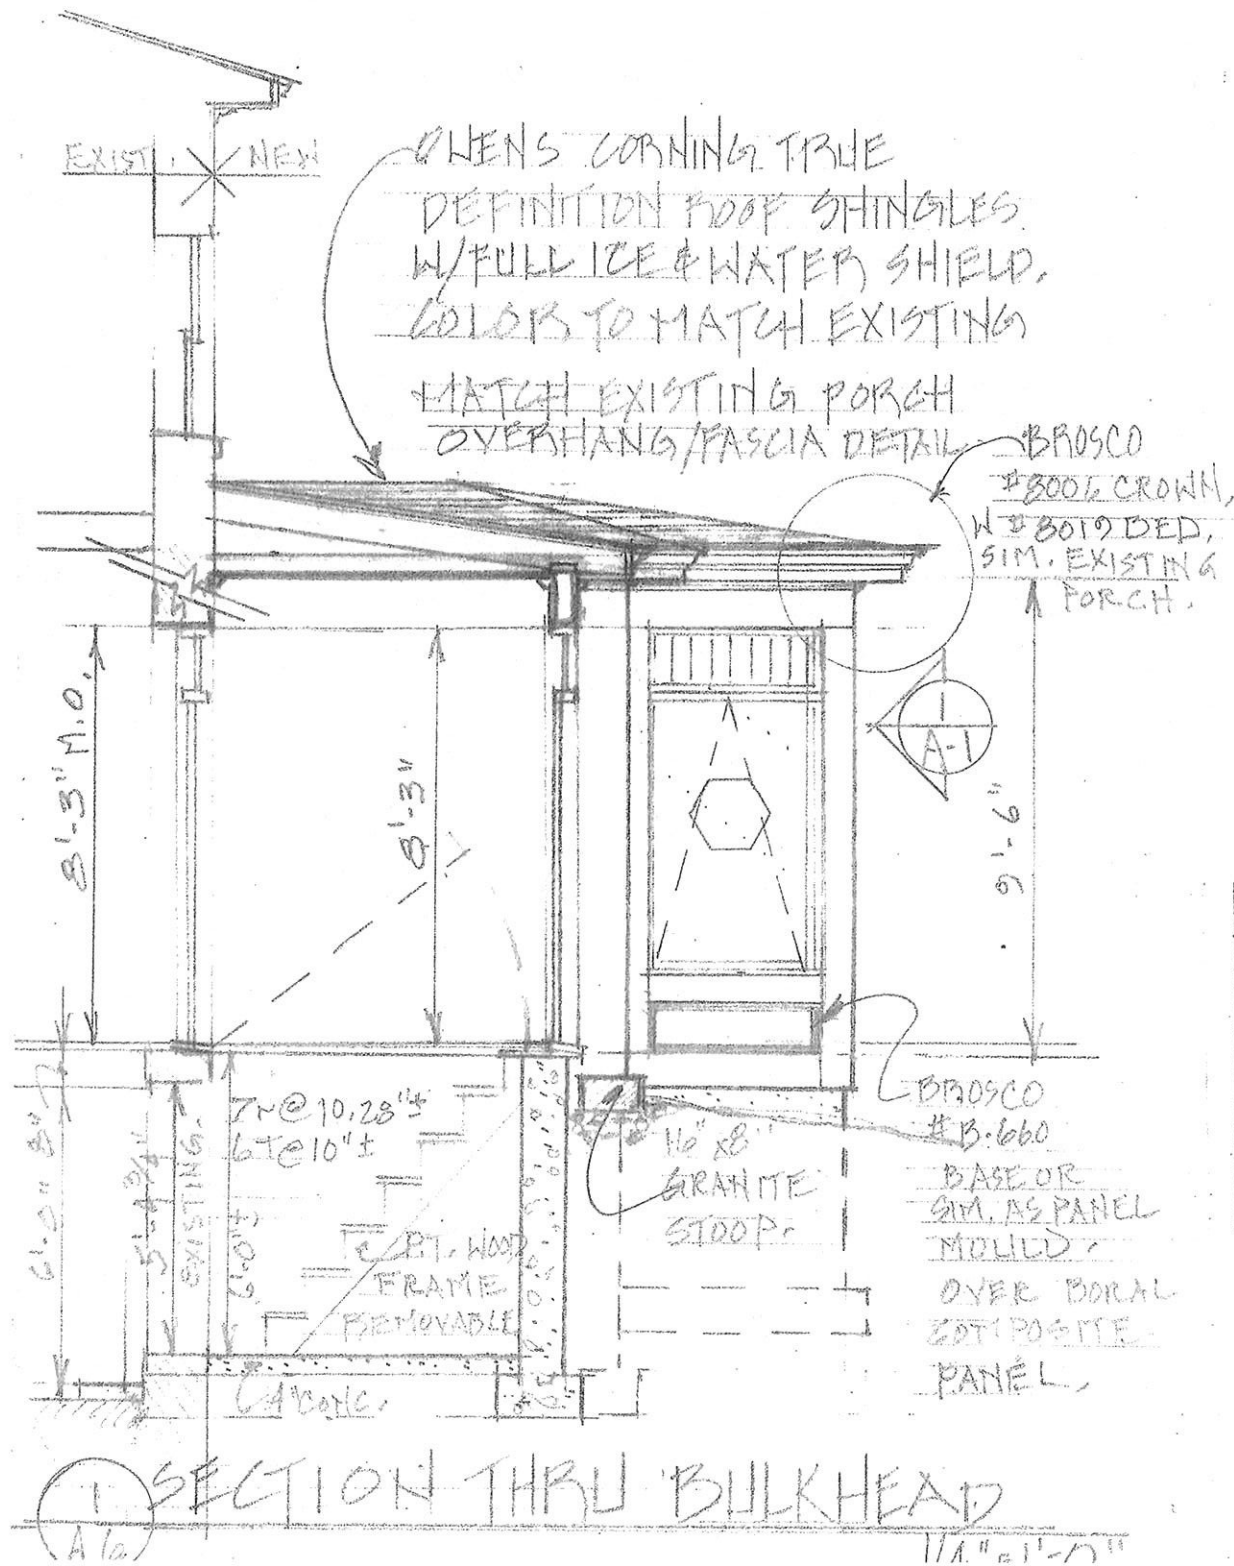 EXIST. NEW
OWENS CORNING TRUE
DEFINITION ROOF SHINGLES
W/FULL ICE & WATER SHIELD.
COLOR TO MATCH EXISTING
MATCH EXISTING PORCH
OVERHANG/FASCIA DETAIL
BROSCO
#8006 CROWN,
W #8019 BED,
SIM. EXISTING
PORCH.
8'-3" M.O.
8'-3"
A-1
9'-6"
7R@10.28"±
6T@10"±
6'-0"
5'-4 3/4"
EXISTING.
6'-0"±
P.T. WOOD
FRAME
REMOVABLE
4" CONC.
16" x8"
GRANITE
STOOP.
BROSCO
#B-660
BASE OR
SIM. AS PANEL
MOULD.
OVER BORAL
COMPOSITE
PANEL.
1
A6
SECTION THRU BULKHEAD
1/4"=1'-0"